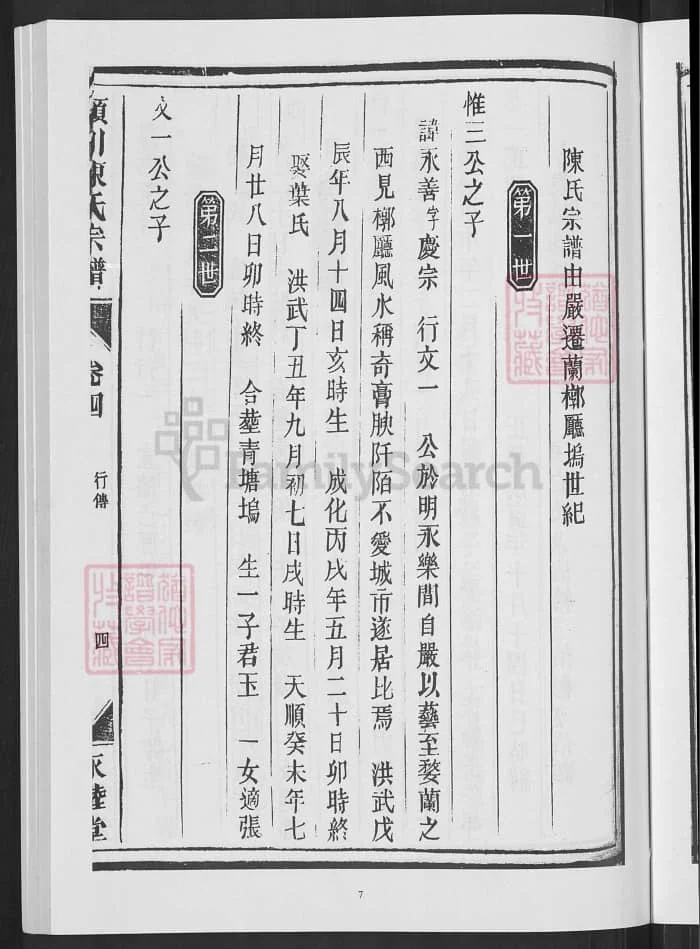 陳氏宗譜由嚴遷蘭槨廳塢世紀
第一世
惟三公之子
諱永善字慶宗 行文一 公於明永樂間自嚴以藝至婺蘭之
西見槨廳風水稱奇膏腴阡陌不愛城市遂居比焉 洪武戊
辰年八月十四日亥時生 成化丙戌年五月二十日卯時終
娶葉氏 洪武丁丑年九月初七日戌時生 天順癸未年七
月廿八日卯時終 合塟青塘塢 生一子君玉 一女適張
第二世
文一公之子
潁川陳氏宗譜 卷四 行傳 四 永睦堂
FamilySearch
7